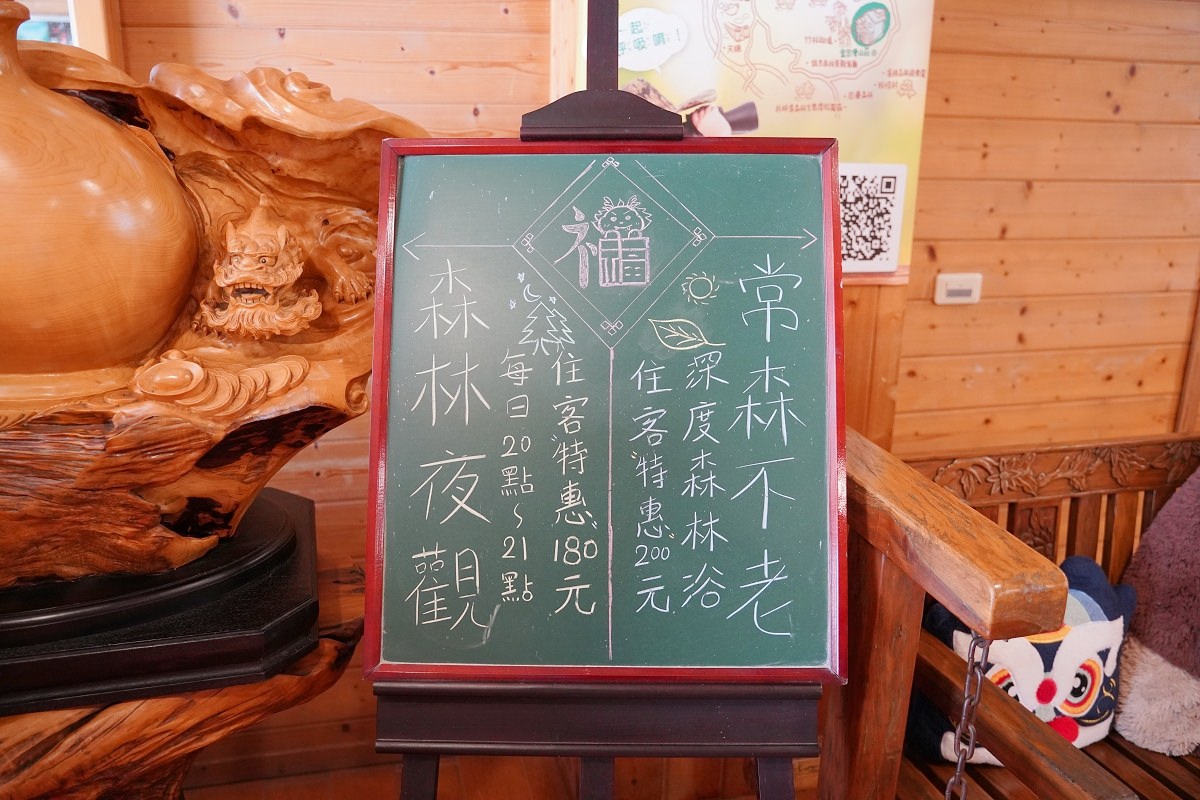 福
常森不老
深度森林浴
住客"特惠"200元
住客"特惠"180元
每日20點~21點
森林夜觀